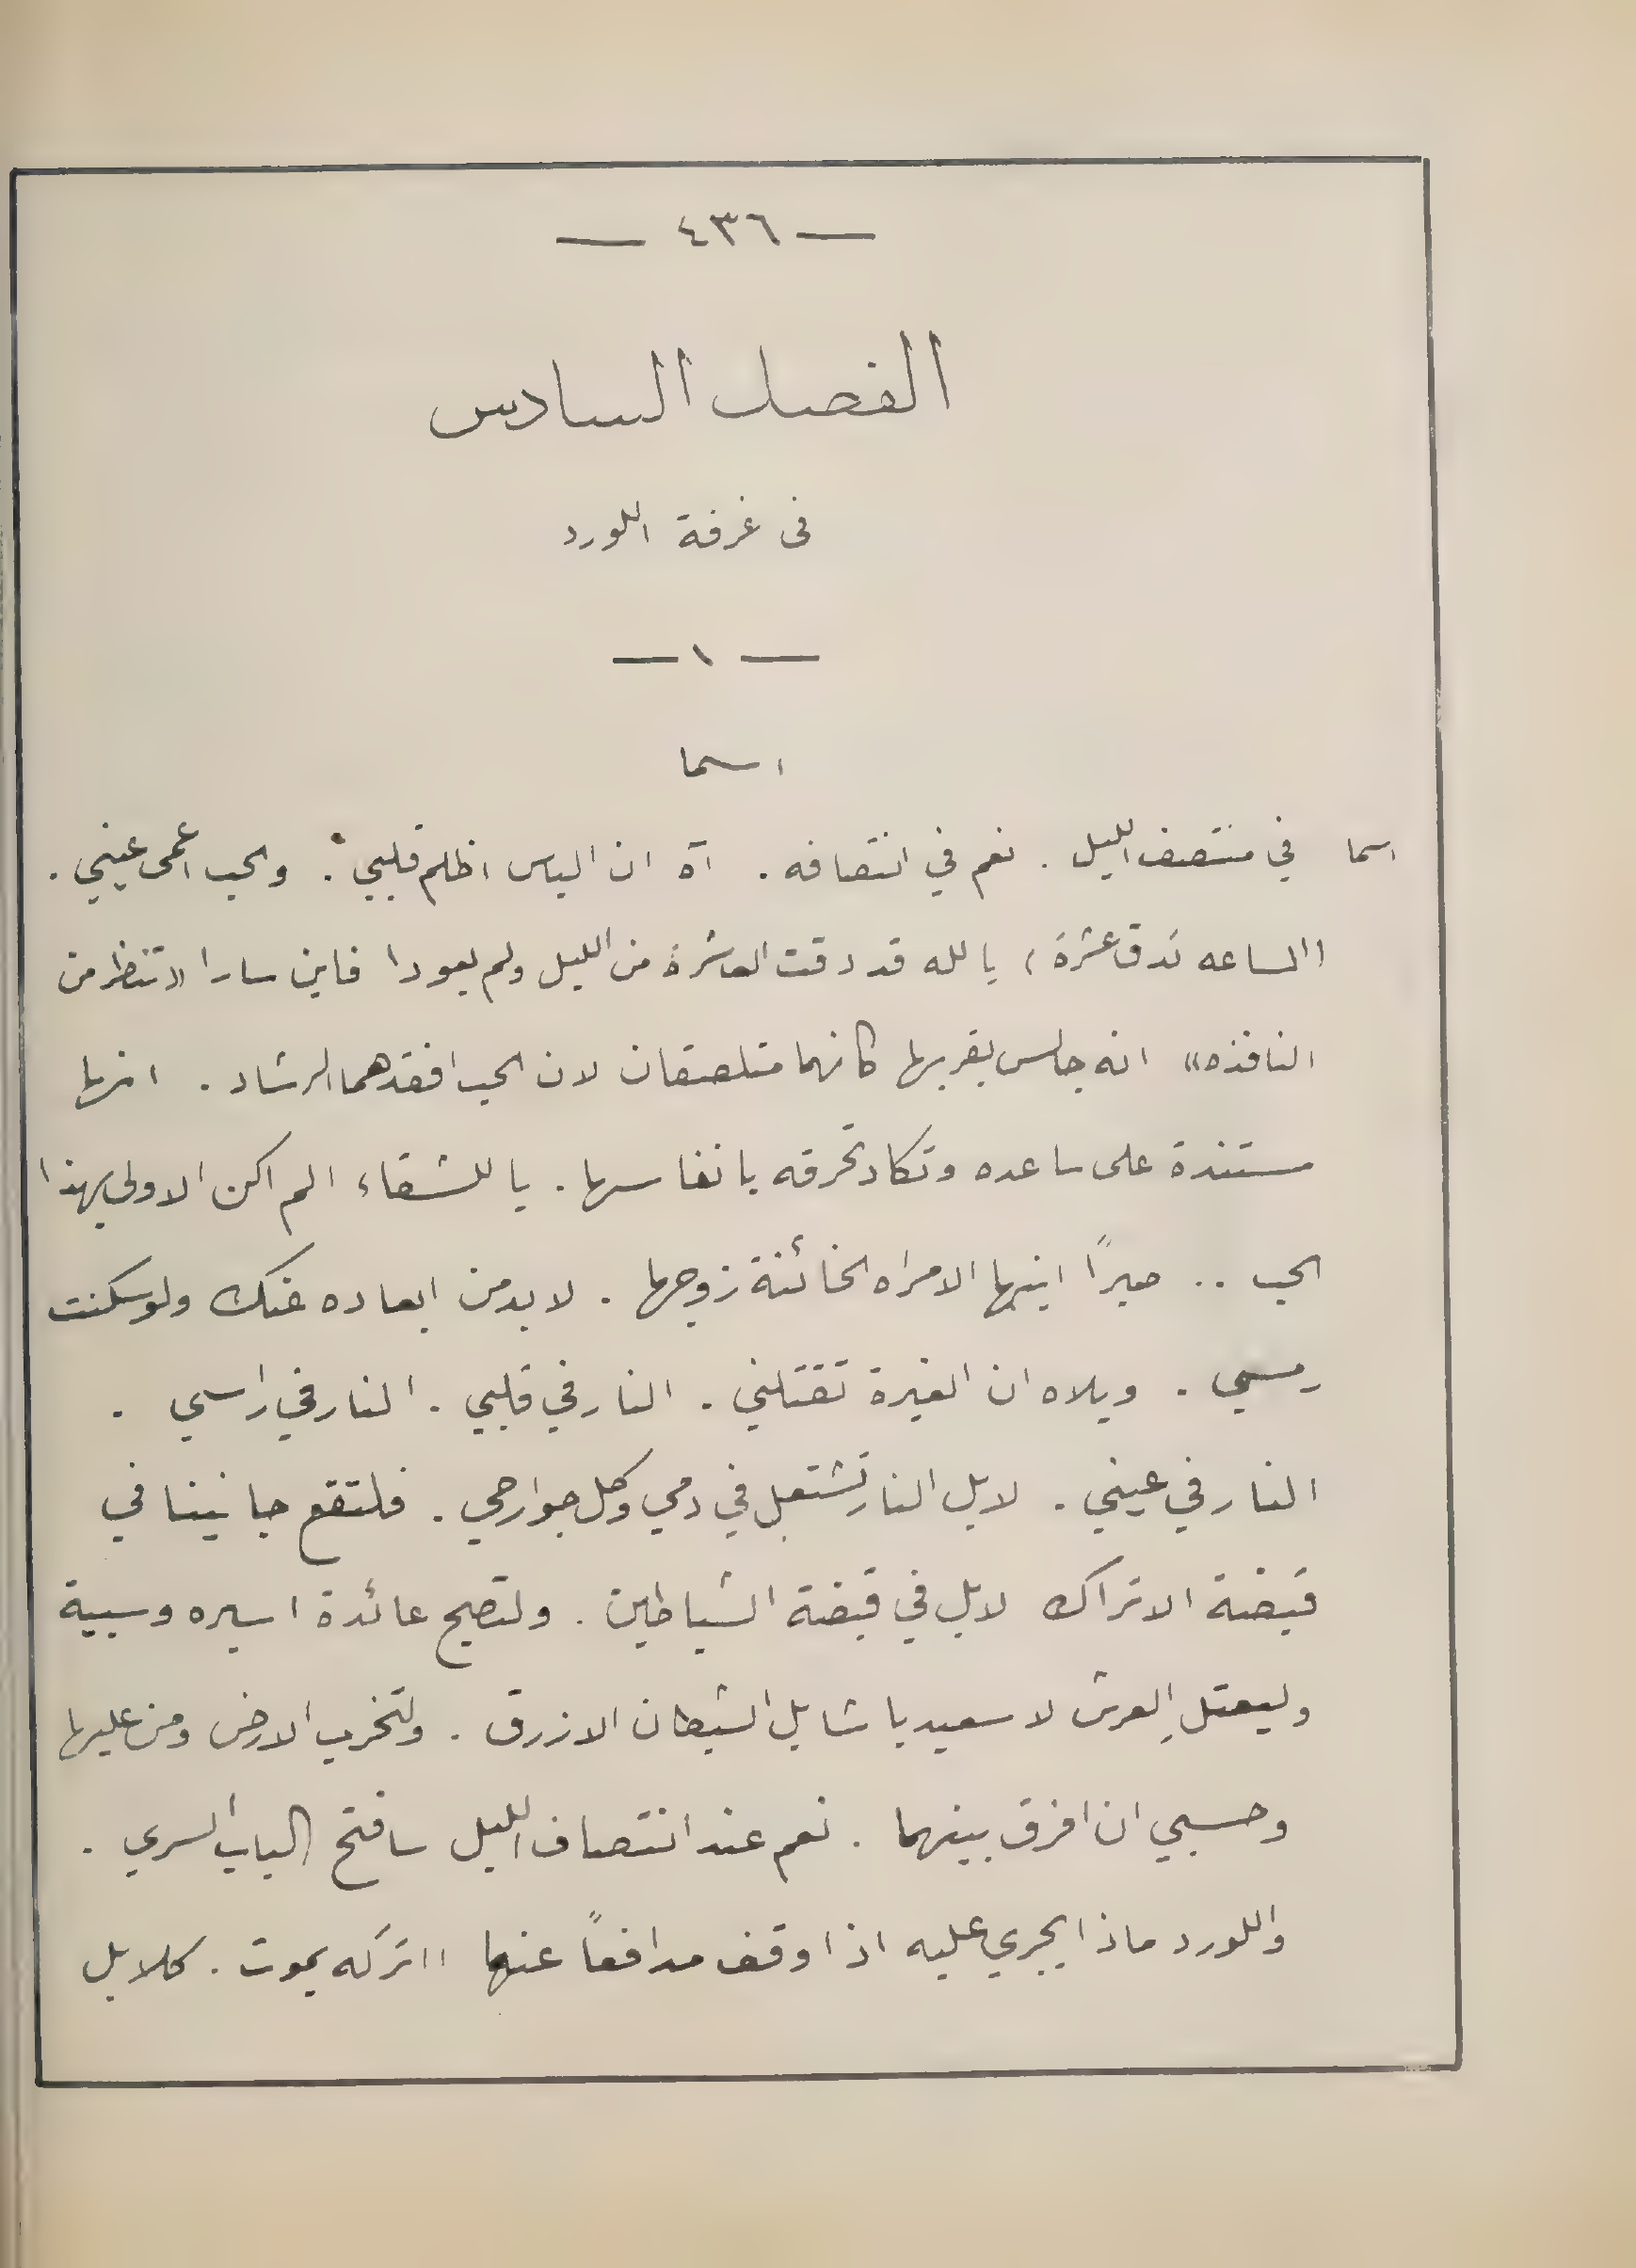 — ٤٣٦ —
الفصل السادس
فى غرفة اللورد
— ١ —
اسما
اسما في منتصف الليل . نعم في انتصافه . آه ان الياس اظلم قلبي . والحب اعمى عيني .
(الساعه تدق عشرة) يا لله قد دقت العاشرة من الليل ولم يعودا فاين سارا «تنظر من
النافذه» انه جالس بقربها كانهما متلصقان لان الحب افقدهما الرشاد . انها
مستندة على ساعده وتكاد تحرقه بانفاسها . يا للشقاء الم اكن الاولى بهذا
الحب .. صبرًا ايتها الامراه الخائنة زوجها . لا بد من ابعاده عنك ولو سكنت
رمسي . ويلاه ان الغيرة تقتلني . النار في قلبي . النار في راسي .
النار في عيني . لا بل النار تشتعل في دمي وكل جوارحي . فلتقع جانينا في
قبضة الاتراك لا بل في قبضة الشياطين . ولتصبح عائدة اسيره وسبية
وليعتلِ العرش لا سعيد باشا بل الشيطان الازرق . ولتخرب الارض ومن عليها
وحسبي ان افرق بينهما . نعم عند انتصاف الليل سافتح الباب السري .
واللورد ماذا يجري عليه اذا وقف مدافعاً عنها ااتركه يموت . كلا بل